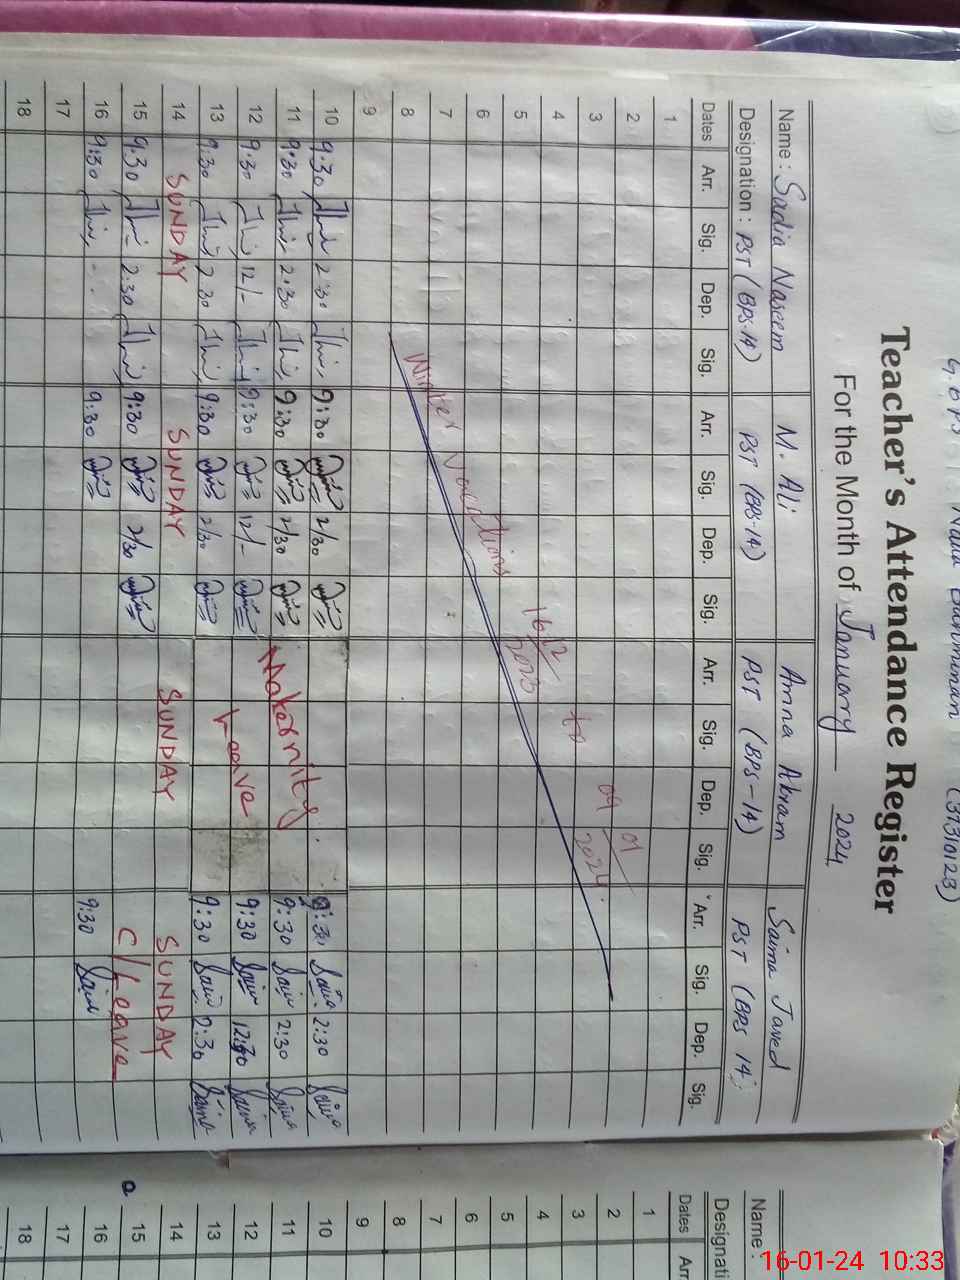 (37310123)
Teacher's Attendance Register
For the Month of January 2024
Name : Sadia Naseem M. Ali Amna Akram Saima Javed
Designation : PST (BPS-14) PST (BPS-14) PST (BPS-14) PST (BPS 14)
Dates Arr. Sig. Dep. Sig. Arr. Sig. Dep. Sig. Arr. Sig. Dep. Sig. Arr. Sig. Dep. Sig.
1
2
3
4
5
6
7
8
9
Winter Vacations 16/12/2023 to 09/01/2024
10 9:30 2:30 9:30 2/30 9:30 Saima 2:30 Saima
11 9:30 2:30 9:30 2/30 Maternity 9:30 Saima 2:30 Saima
12 9:30 12/- 9:30 12/- Leave 9:30 Saima 12:30 Saima
13 9:30 2:30 9:30 2/30 9:30 Saima 2:30 Saima
14 SUNDAY SUNDAY SUNDAY SUNDAY
15 9:30 2:30 9:30 2/30 C/Leave
16 9:30 9:30 9:30 Saima
17
18
Name :
Designati
Dates Arr
1
2
3
4
5
6
7
8
9
10
11
12
13
14
15
16
17
18
16-01-24 10:33